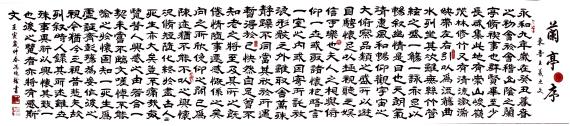 蘭亭序
東晉王羲之文
永和九年歲在癸丑暮春
之初會於會稽山陰之蘭
亭脩稧事也群賢畢至少
長咸集此地有崇山峻嶺
茂林修竹又有清流激湍
映帶左右引以為流觴曲
水列坐其次雖無絲竹管
絃之盛一觴一詠亦足以
暢敘幽情是日也天朗氣
清惠風和暢仰觀宇宙之
大俯察品類之盛所以遊
目騁懷足以極視聽之娛
信可樂也夫人之相與俯
仰一世或取諸懷抱晤言
一室之內或因寄所託放
浪形骸之外雖取舍萬殊
靜躁不同當其欣於所遇
暫得於己快然自足曾不
知老之將至及其所之既
倦情隨事遷感慨係之矣
向之所欣俛仰之間已為
陳迹猶不能不以之興懷
況脩短隨化終期於盡古人云
死生亦大矣豈不痛哉每
覽昔人興感之由若合一
契未嘗不臨文嗟悼不能
喻之於懷固知一死生為
虛誕齊彭殤為妄作後之
視今亦猶今之視昔悲夫
故列敘時人錄其所述雖
世殊事異所以興懷其致一
也後之覽者亦將有感於斯
文